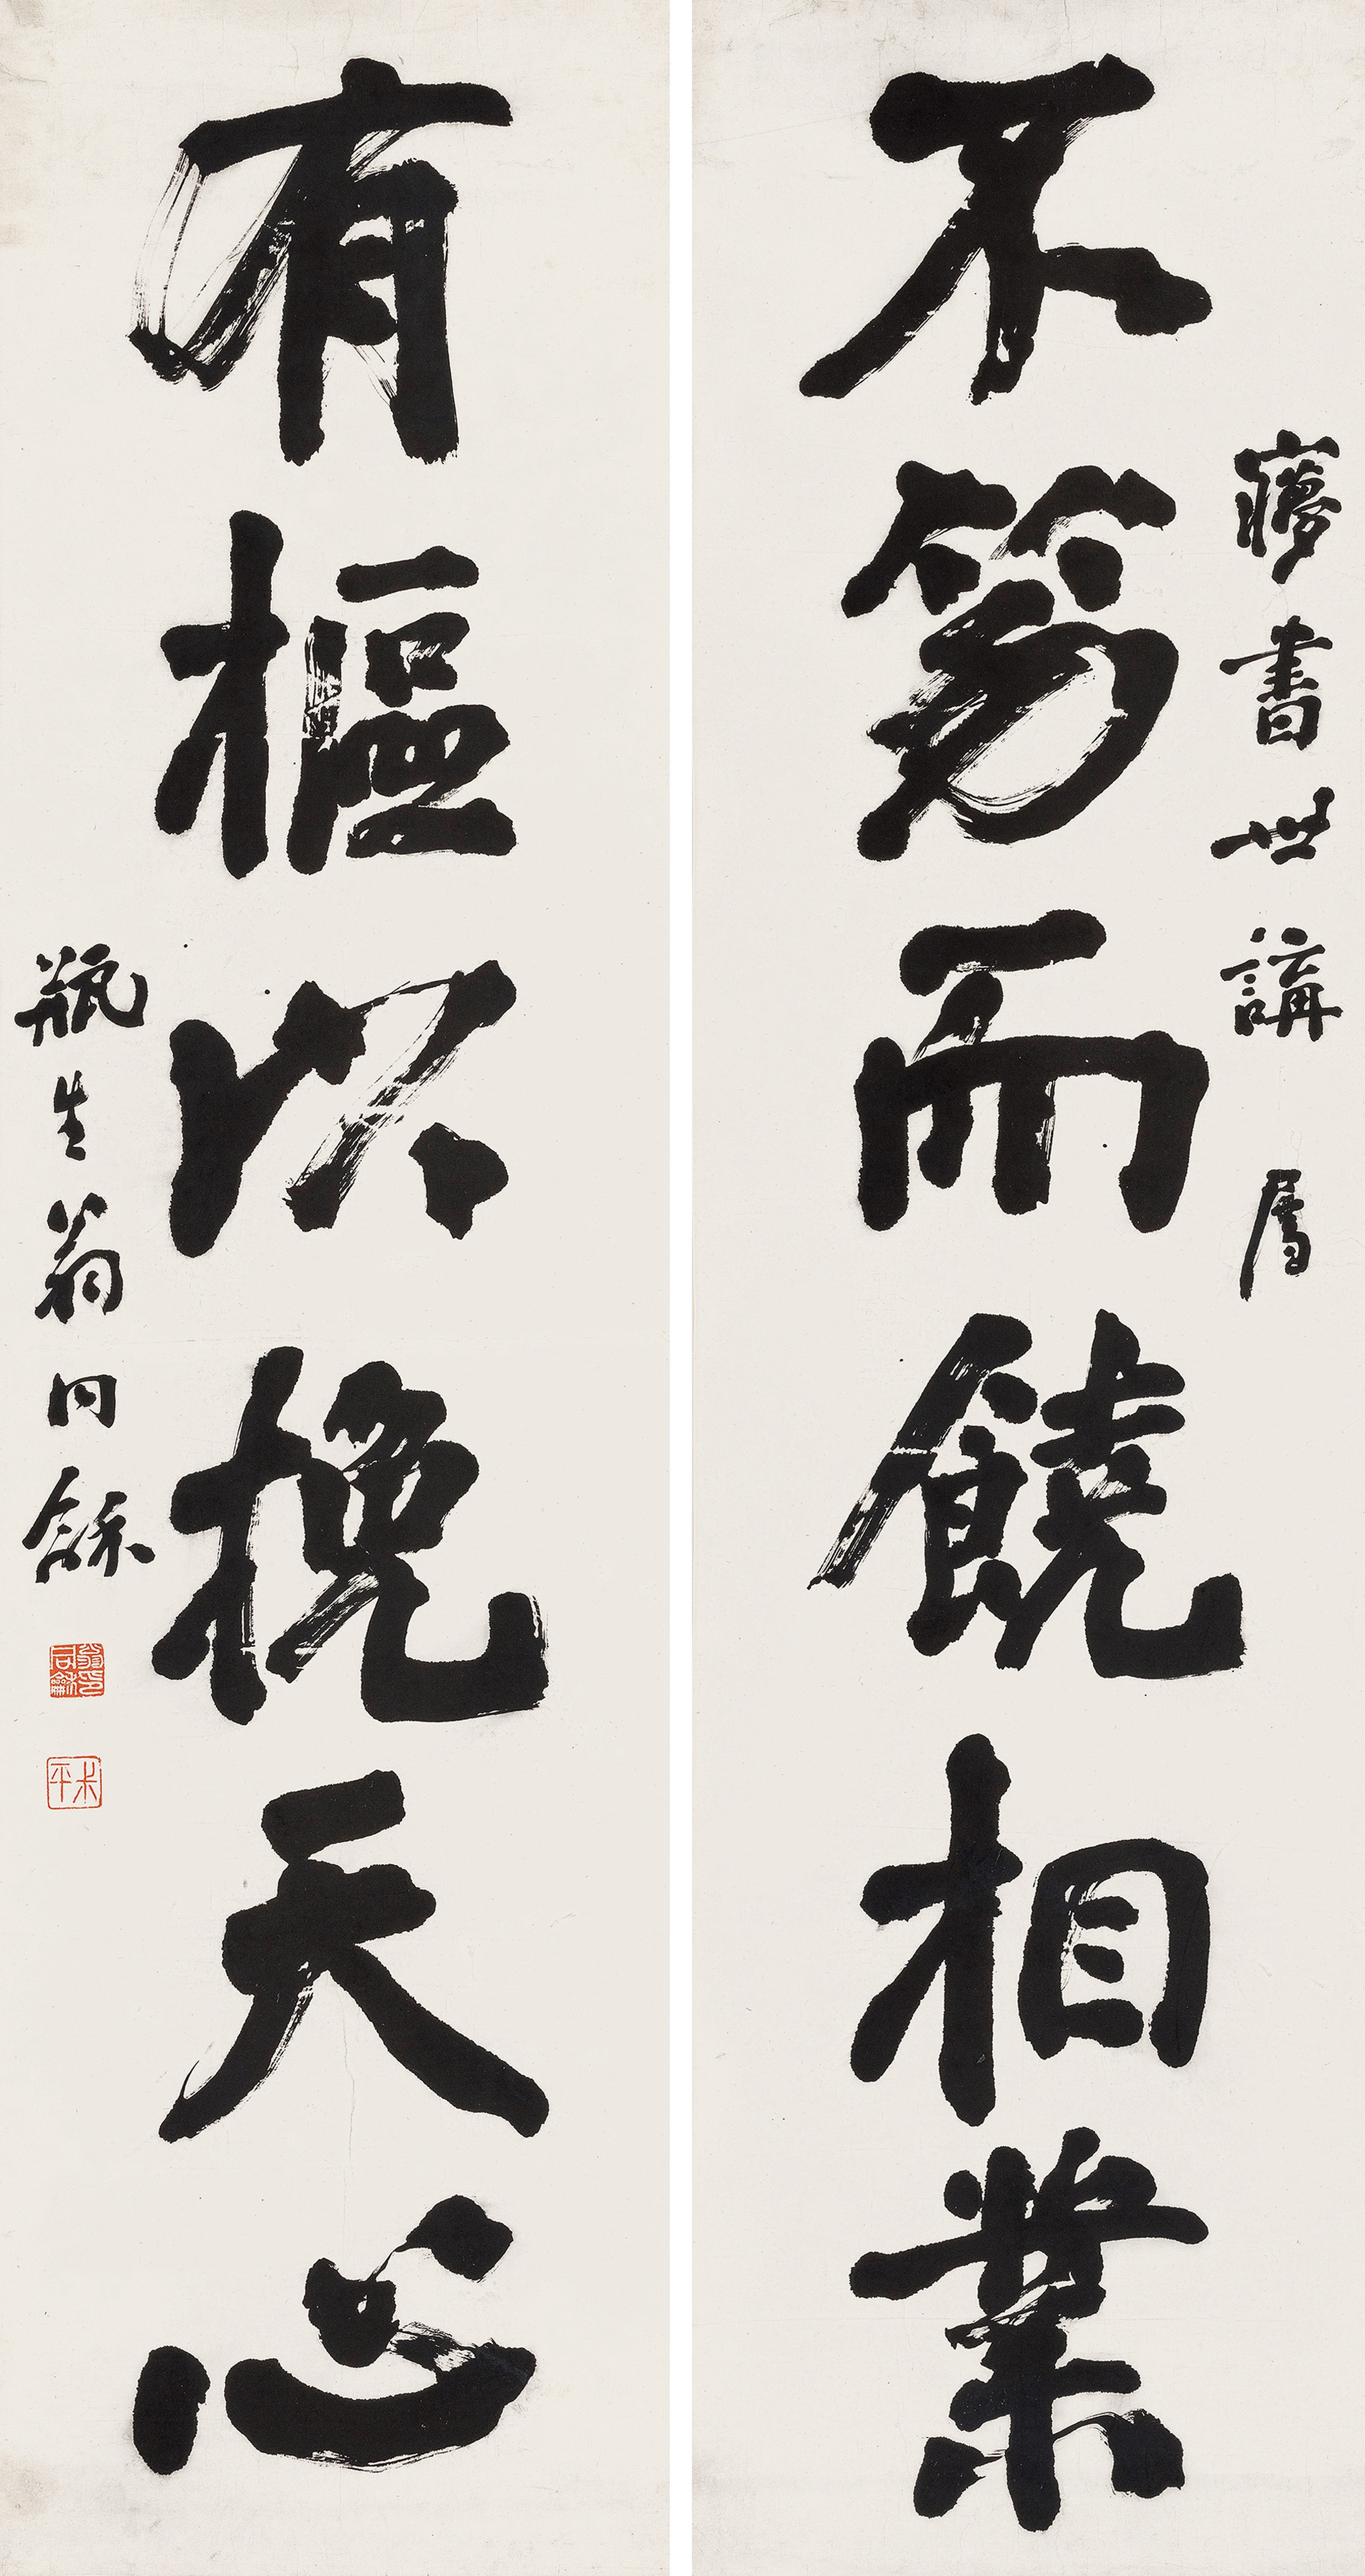 㝱書世講属
不笏而饒相業
有樞以挽天心
瓶生翁同龢
翁同龢印
尗平